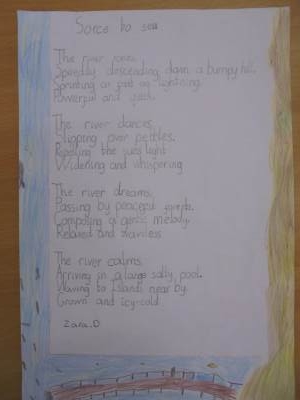 Sorce to sea
The river
Speedily descending down a bumpy hill.
Sprinting as fast as lightning.
Powerful and quick.
The river dances,
over pebbles.
the suns light
Widening and whispering
The river dreams.
Passing by peaceful
Composing a gentle melody.
Relaxed and
The river calms.
Arriving in a large salty pool.
Waving to islands near by.
Grown and icy-cold.
Zara.O